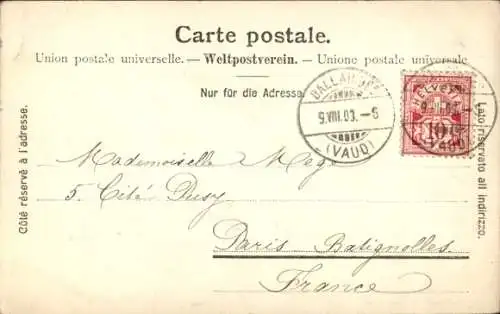 Carte postale.
Union postale universelle. — Weltpostverein. — Unione postale universale
Nur für die Adresse
BALLAI
9.VIII.03.-5
(VAUD)
HELVETIA
10
VAUD
Côté réservé à l'adresse.
Lato riservato all indirizzo.
Mademoiselle
5. Cité
Paris Batignolles.
France